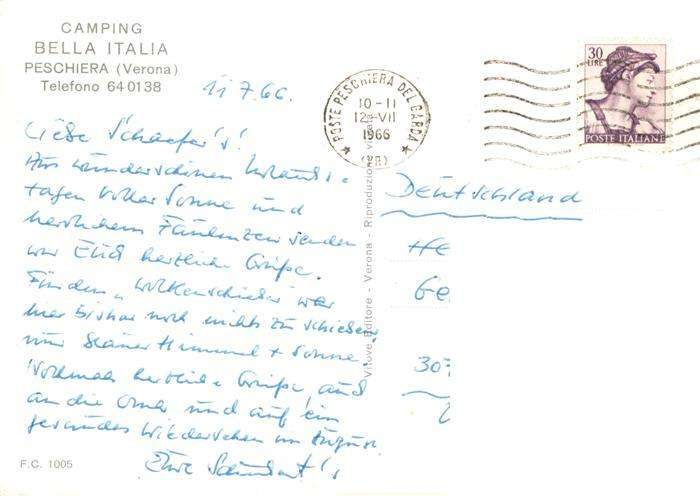 CAMPING
BELLA ITALIA
PESCHIERA (Verona)
Telefono 640138
11.7.66.
Liebe Schaefer's!
Aus wunderschönen Urlaubs-
tagen voller Sonne und
herrlichem Faulenzen senden
wir Euch herzliche Grüße.
Für den „Wolkenschieber" war
hier bisher noch nichts zu schieben
nur blauer Himmel + Sonne.
Nochmals herzliche Grüße auch
an die Oma und auf ein
gesundes Wiedersehen im August
Eure
F.C. 1005
Vitove Editore - Verona - Riproduzione vietata
POSTE PESCHIERA DEL GARDA
10-11
12·VII
1966
(VR)
30
LIRE
POSTE ITALIANE
Deutschland
He
Ge
307